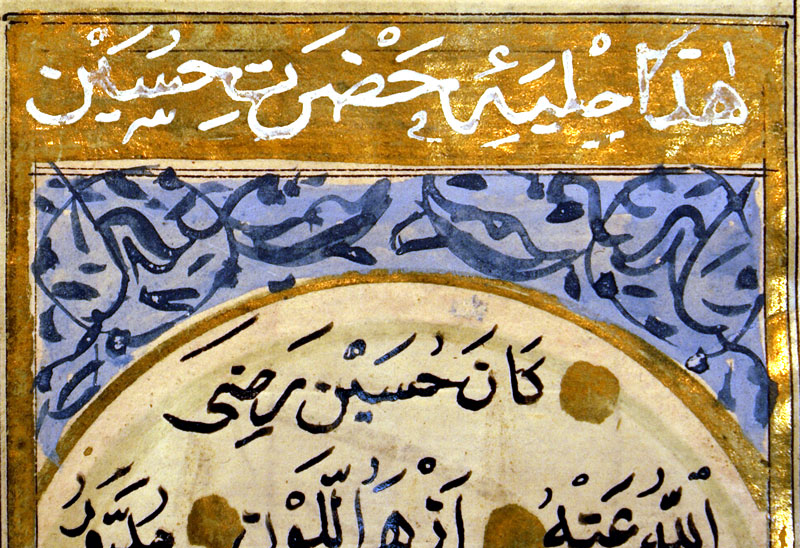 هٰذَا حِلْيَۀِ حَضْرَتِ حِسَيْن
كَانَ حُسَيْن رَضِىَ
اللّٰهُ عَنْهُ اَزْهَرَ اللَّوْنِ مُدَوَّرُ